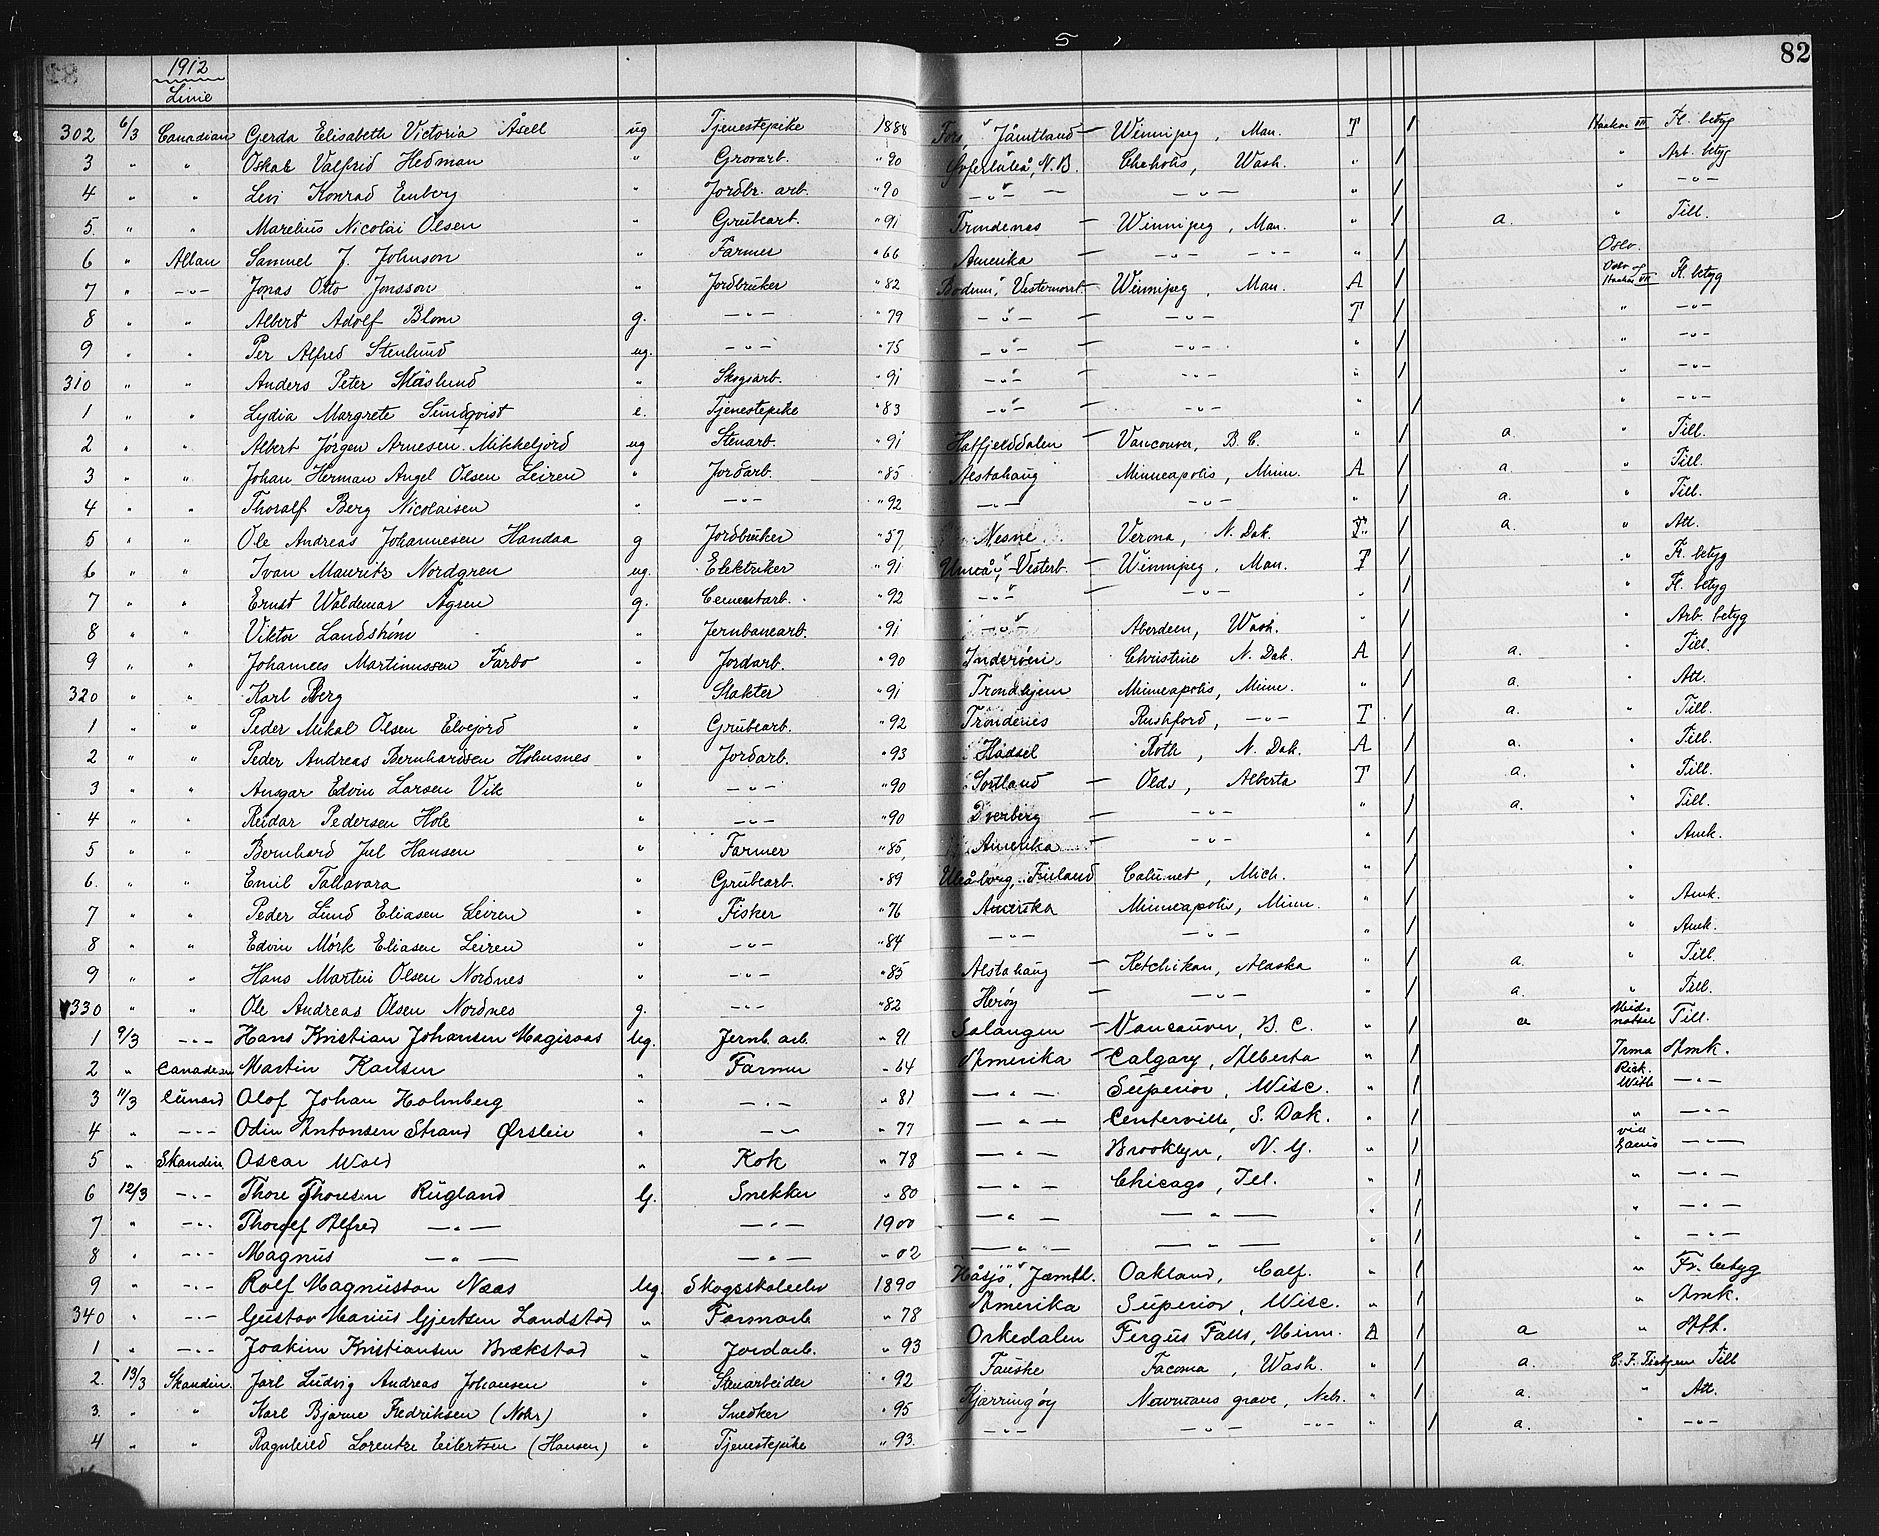 5
82
1912
Linie
302 6/3 Canadian Gerda Elisabeth Victoria Åsell ug Tjenestepike 1888 Fors, Jämtland — Winnipeg, Man. T / Haakon VII Fl. betyg
3 " " Oskar Valfrid Hedman " Grovarb. " 90 Øfverluleå, N.B. Chehalis, Wash. " / " Arb. betyg
4 " " Levi Konrad Enberg " Jordbr. arb. " 90 —"— — —"— " / " —"—
5 " " Marelius Nicolai Olsen " Grubearb. " 91 Trondenes — Winnipeg, Man. " / a. " Till.
6 " Allan Samuel J. Johnson " Farmer " 66 Amerika — —"— —"— " / Oslo.
7 " —"— Jonas Otto Jonsson " Jordbruker " 82 Bodum, Vesternorrl. — Winnipeg, Man. A / Oslo og Haakon VII Fl. betyg
8 " " Albert Adolf Blom g. —"— " 79 —"— — —"— T / " —"—
9 " " Per Alfred Stenlund ug. —"— " 75 —"— —"— " / " —"—
310 " " Anders Peter Näslund " Skogsarb. " 91 —"— —"— " / " —"—
1 " " Lydia Margrete Sundqvist e. Tjenestepike " 83 —"— —"— " / " —"—
2 " " Albert Jörgen Arnesen Mikkeljord ug Stenarb. " 91 Hatfjelddalen — Vancouver, B.C. " / a. " Till.
3 " " Johan Herman Angel Olsen Leiren " Jordarb. " 85 Alstahaug Minneapolis, Minn. A / a " Till.
4 " " Thoralf Berg Nicolaisen " —"— " 92 —"— —"— " / a. " Till.
5 " " Ole Andreas Johannesen Handaa g Jordbruker " 57 Nesne Verona, N. Dak. T / a. " Att.
6 " " Ivan Mauritz Nordgren ug. Elektriker " 91 Umeå, Vesterb. — Winnipeg, Man. T / " Fl. betyg
7 " " Ernst Waldemar Ågren g. Cementarb. " 92 —"— — —"— " / " Fl. betyg
8 " " Viktor Landström " Jernbanearb. " 91 —"— Aberdeen, Wash. " / " Arb. betyg
9 " " Johannes Martinussen Farbo " Jordarb. " 90 Inderøen Christine N. Dak. A / a. " Till.
320 " " Karl Berg " Slakter " 91 Trondhjem Minneapolis, Minn. " / a. " Att.
1 " " Peder Mikal Olsen Elvejord " Grubearb. " 92 Trondenes Rushford, —"— T / a. " Till.
2 " " Peder Andreas Bernhardsen Holmsnes " Jordarb. " 93 Hadsel Roth, N. Dak. A / a. " Till.
3 " " Ansgar Edvin Larsen Vik " —"— " 90 Sortland — Olds, Alberta T / a. " Till.
4 " " Reidar Pedersen Hole " —"— " 90 Dverberg — —"— " / a. " Till.
5 " " Bernhard Jul Hansen " Farmer " 85 Amerika — —"— " / " Amk.
6. " " Emil Tallavara " Grubearb. " 89 Uleåborg, Finland Calumet, Mich. " / "
7 " " Peder Lund Eliasen Leiren " Fisker " 76 Amerika Minneapolis, Minn. " / " Amk.
8 " " Edvin Mörk Eliasen Leiren " —"— " 84 —"— —"— " / " Amk.
9 " " Hans Martin Olsen Nordnes " —"— " 85 Alstahaug — Ketchikan, Alaska " / a. " Till.
330 " " Ole Andreas Olsen Nordnes g. —"— " 82 Herøy — —"— " / a. " Till.
1 9/3 —"— Hans Kristian Johansen Magisaas ug. Jernb. arb. " 91 Salangen — Vancouver, B.C. " / a Midnatsol Till.
2 " Canadian Martin Karlsen " Farmer " 64 Amerika — Calgary, Alberta " / Irma Amk.
3 11/3 Cunard Olof Johan Holmberg " —"— " 81 —"— Superior, Wisc. " / Rick. With —"—
4 " —"— Odin Antonsen Strand Ørslein " —"— " 77 —"— Centerville, S. Dak. " / " —"—
5 " Skandin. Oscar Wold " Kok " 78 —"— Brooklyn, N.Y. " / —"—
6 12/3 —"— Thore Thoresen Rugland G. Snekker " 80 —"— Chicago, Ill. " / " —"—
7 " —"— Thorlef Alfred —"— —"— 1900 —"— —"— " / " —"—
8 " —"— Magnus —"— —"— " 02 —"— —"— " / " —"—
9 " —"— Rolf Magnusson Næss ug. Skogsskoleelev 1890 Håsjö, Jæmtl. Oakland, Calf. " / " Fr. betyg
340 " —"— Gustav Marius Gjertsen Landstad " Farmarb. " 78 Amerika Superior, Wisc. " / " Amk.
1 " —"— Joakim Kristiansen Brækstad " Jordarb. " 93 Orkedalen Fergus Falls, Minn. A / a " Att.
2. 13/3 Skandin. Jarl Ludvig Andreas Johansen " Stenarbeider " 92 Fauske Tacoma, Wash. " / a. C. F. Tietgen Till
3. " " Karl Bjarne Fredriksen (Nohr) " Snedker " 95 Kjerringøy Newmans grove, Neb. " / a. " Att.
4 " " Ragnhild Lorentze Eilertsen (Hansen) " Tjenestepike " 93. —"— —"— —"— " / a. " —"—